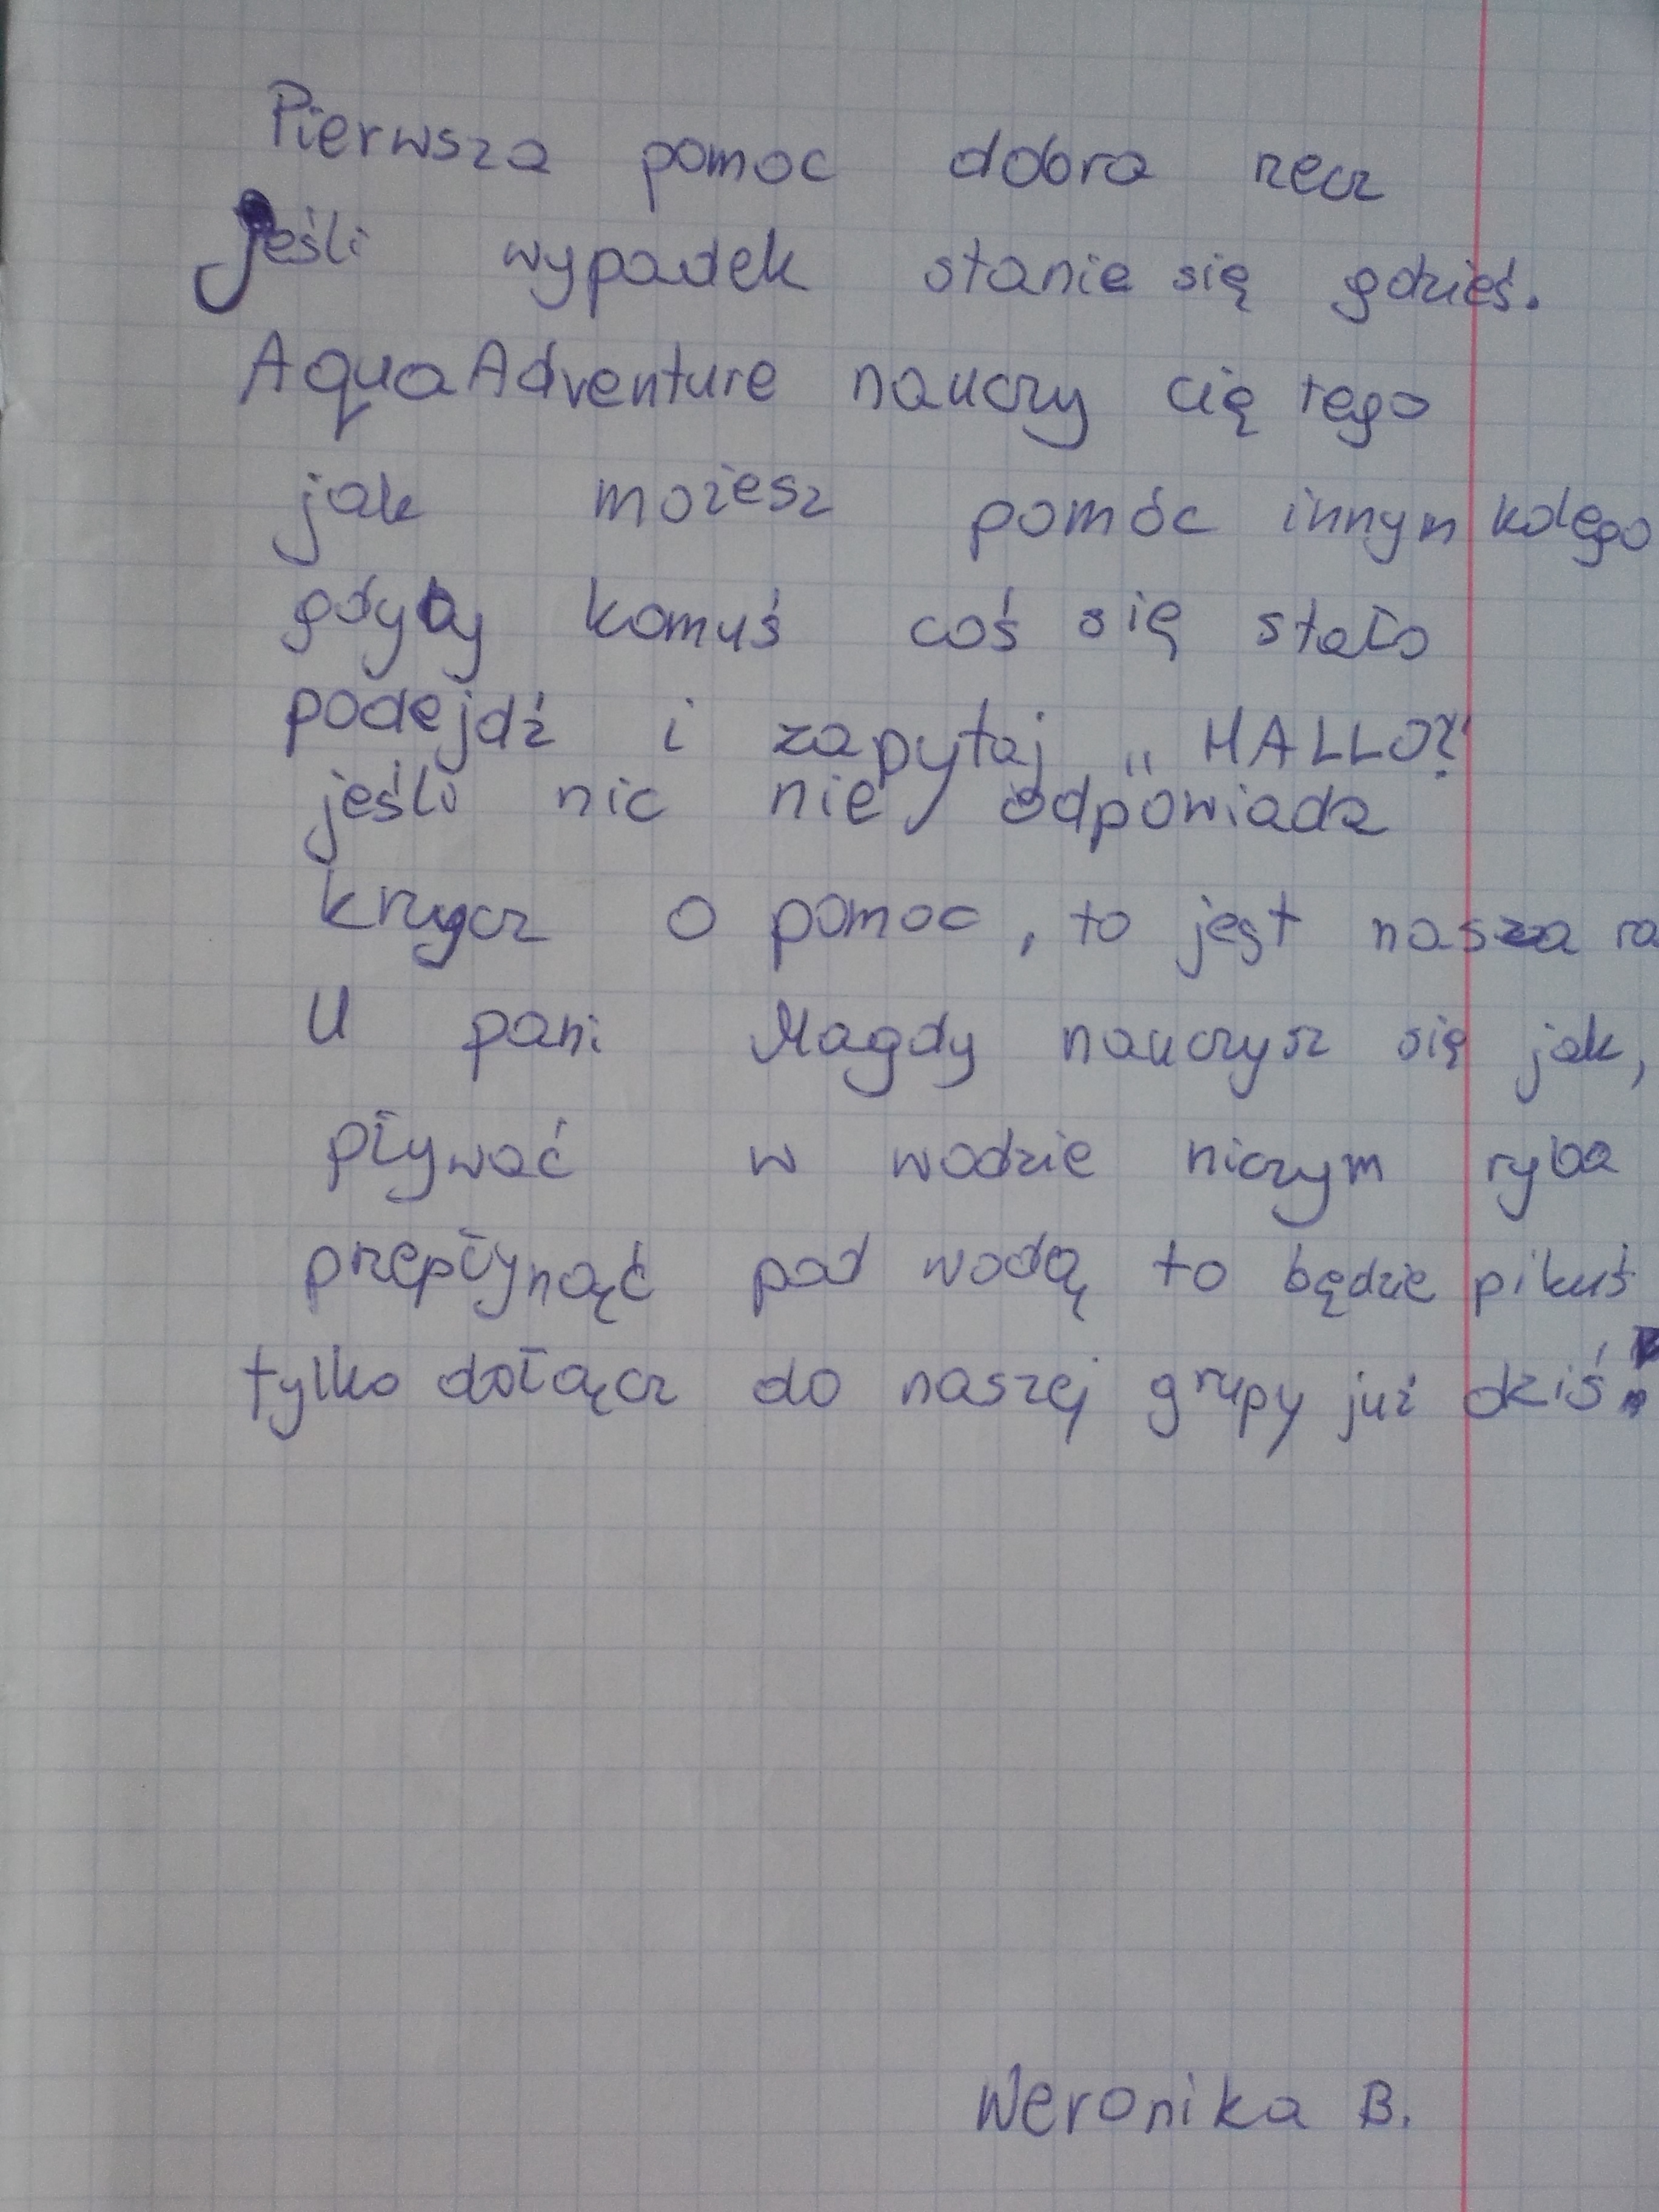 Pierwsza pomoc dobra rzecz
jeśli wypadek stanie się gdzieś.
AquaAdventure nauczy cię tego
jak możesz pomóc innym kolego
gdyby komuś coś się stało
podejdź i zapytaj „HALLO?"
jeśli nic nie odpowiada
krzycz o pomoc, to jest nasza ra
U pani Magdy nauczysz się jak,
pływać w wodzie niczym ryba
przepłynąć pod wodą to będzie pikuś
tylko dołącz do naszej grupy już dziś!
Weronika B.